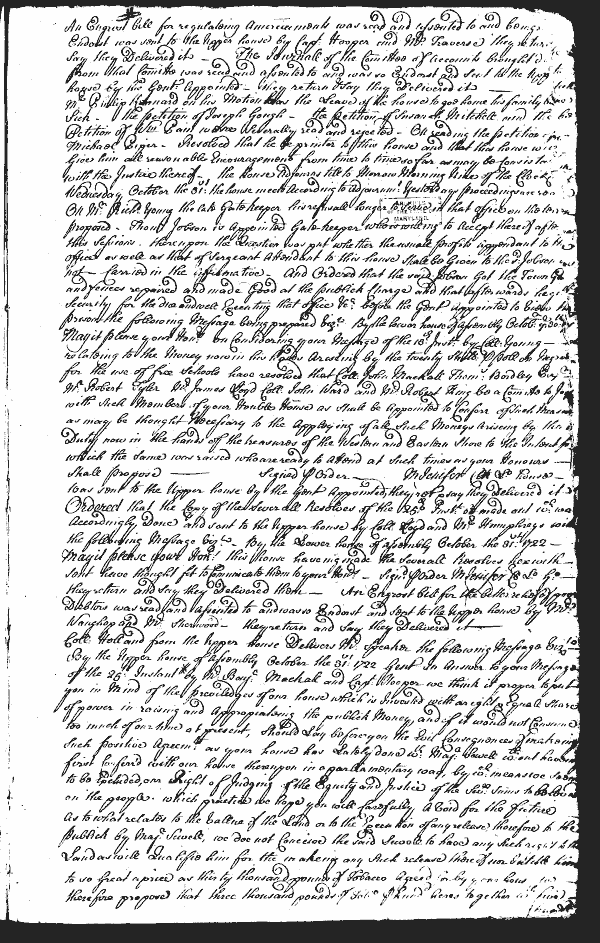 An Engrost bill for regulateing Amerciaments was read and assented to and being
Endost was sent to the upper house by Capt Hooper and Mr Traverse they return
Say they Delivered it — The Journale of the Comittee of Accounts brought in
from that Comittee was read and assented to and was so Endorst and sent to the upp
house by the Gent Appointed — they return & Say they Delivered it
Mr Phillip Kennard on his Motion has the Leave of the house to go home his family being
Sick — the petition of Joseph Gough — the Petition of Susanah Mitchell and the
Petition of Wm Cam were severally read and rejected — On reading the petition
Michael Piper — Resolved that he be printer to this house and that this house will
Give him all reasonable Encouragement from time to time so far as may be Consistant
with the Justice thereof — the house adjourns till to Morrow Morning Nine of the Clock
Wednesday October the 31st the house meet According to adjournmt Yesterdays proceedings were read
On Mr Richd Young the late Gate keeper his refusall longer to serve in that office on the terms
proposed — Thomas Jobson is Appointed Gate keeper who is willing to Accept thereof after
this Sessions — thereupon the Question was put whether the usuall profits appendant to the
office as well as that of Sergeant Attendant to this house shall be Given to the sd Jobson
not — Carried in the affirmative — And Ordered that the said Jobson Get the Town Ga
and fences repaired and made Good at the publick Charge and that afterwards he gi
Security for the due and well Executing that office &c. before the Gent appointed to
the following Message being prepared Vizt By the lower house of Assembly October
Mayit please your Honrs on Considering your Message of the 10th Inst. by Coll Young —
relateing to the Money now in his hands Ariseing by the twenty Shill p poll on
for the use of free Schools have resolved that Coll John Mackall Thoms Bordley Esqr
Mr Robert Tyler Mr James Lloyd Coll John Ward and Mr Robert King be a Comittee to Joyn
with such Members of your Honble House as shall be Appointed to Confer of such Measures
as may be thought Necessary to the Applyeing of all such Moneys Ariseing by the
Duty now in the hands of the treasurers of the Western and Eastern Shore to the Intent for
which the same was raised who are ready to attend at such times as your Honours
Shall propose — Signed p Order — MJenifer Cl Lo house
was sent to the Upper house by the Gent Appointed, they return & say they Delivered it
Ordered that the Copy of the Severall Resolves of the 25th Inst be made out wch was
Accordingly Done and sent to the Upper house by Coll Lloyd and Mr Humphreys with
the following Message Vizt By the Lower house of Assembly October the 31st 1722 —
Mayit please your Honrs this house haveing made the Severall Resolves herewith
sent have thought fit to Comunicate them to your Honrs Signd p Order MJenifer Cl Lo Ho —
they return and Say they Delivered them — An Engrost bill for the better relief of poor
Debtors was read and assented to and was so Endorst and sent to the Upper house by Mr
Vaughop and Mr Sherwood — they return and Say they Delivered it
Coll Holland from the Upper House Delivers Mr Speaker the following Message Vizt
By the Upper house of Assembly October the 31st 1722 Gent. In Answer to your Message
of the 25th Instant by Mr Bayle Mackall and Capt Hooper we think it proper to put
you in Mind of the priveledges of our house which is invested with a right Equall Share
of power in raiseing and Appropriateing the publick Money, and if it would not Consume
too much of our time at present, should Lay before you the Evil Consequences of makeing
such positive Agreemt as your house has Lately done wth Majr Sewell wthout haveing
first Confered with our house thereupon in a parliamentary way, by wch means we Seem
to be Excluded our Right of Judging of the Equity and Justice of the Sevl Sums to be
on the people. which practice we hope you will Carefully Avoid for the future
As to what relates to the vallue of the Land or to the Execution of any release therefore to the
publick by Majr Sewell, we doe not Conceive the said Sewell to have any such right to the
Land as will Qualifie him for the makeing any such release thereof nor
to so Great a price as thirty thousand pounds of tobacco Agreed for by your house
therefore propose that three thousand pounds of tobo p hund Acres together wth